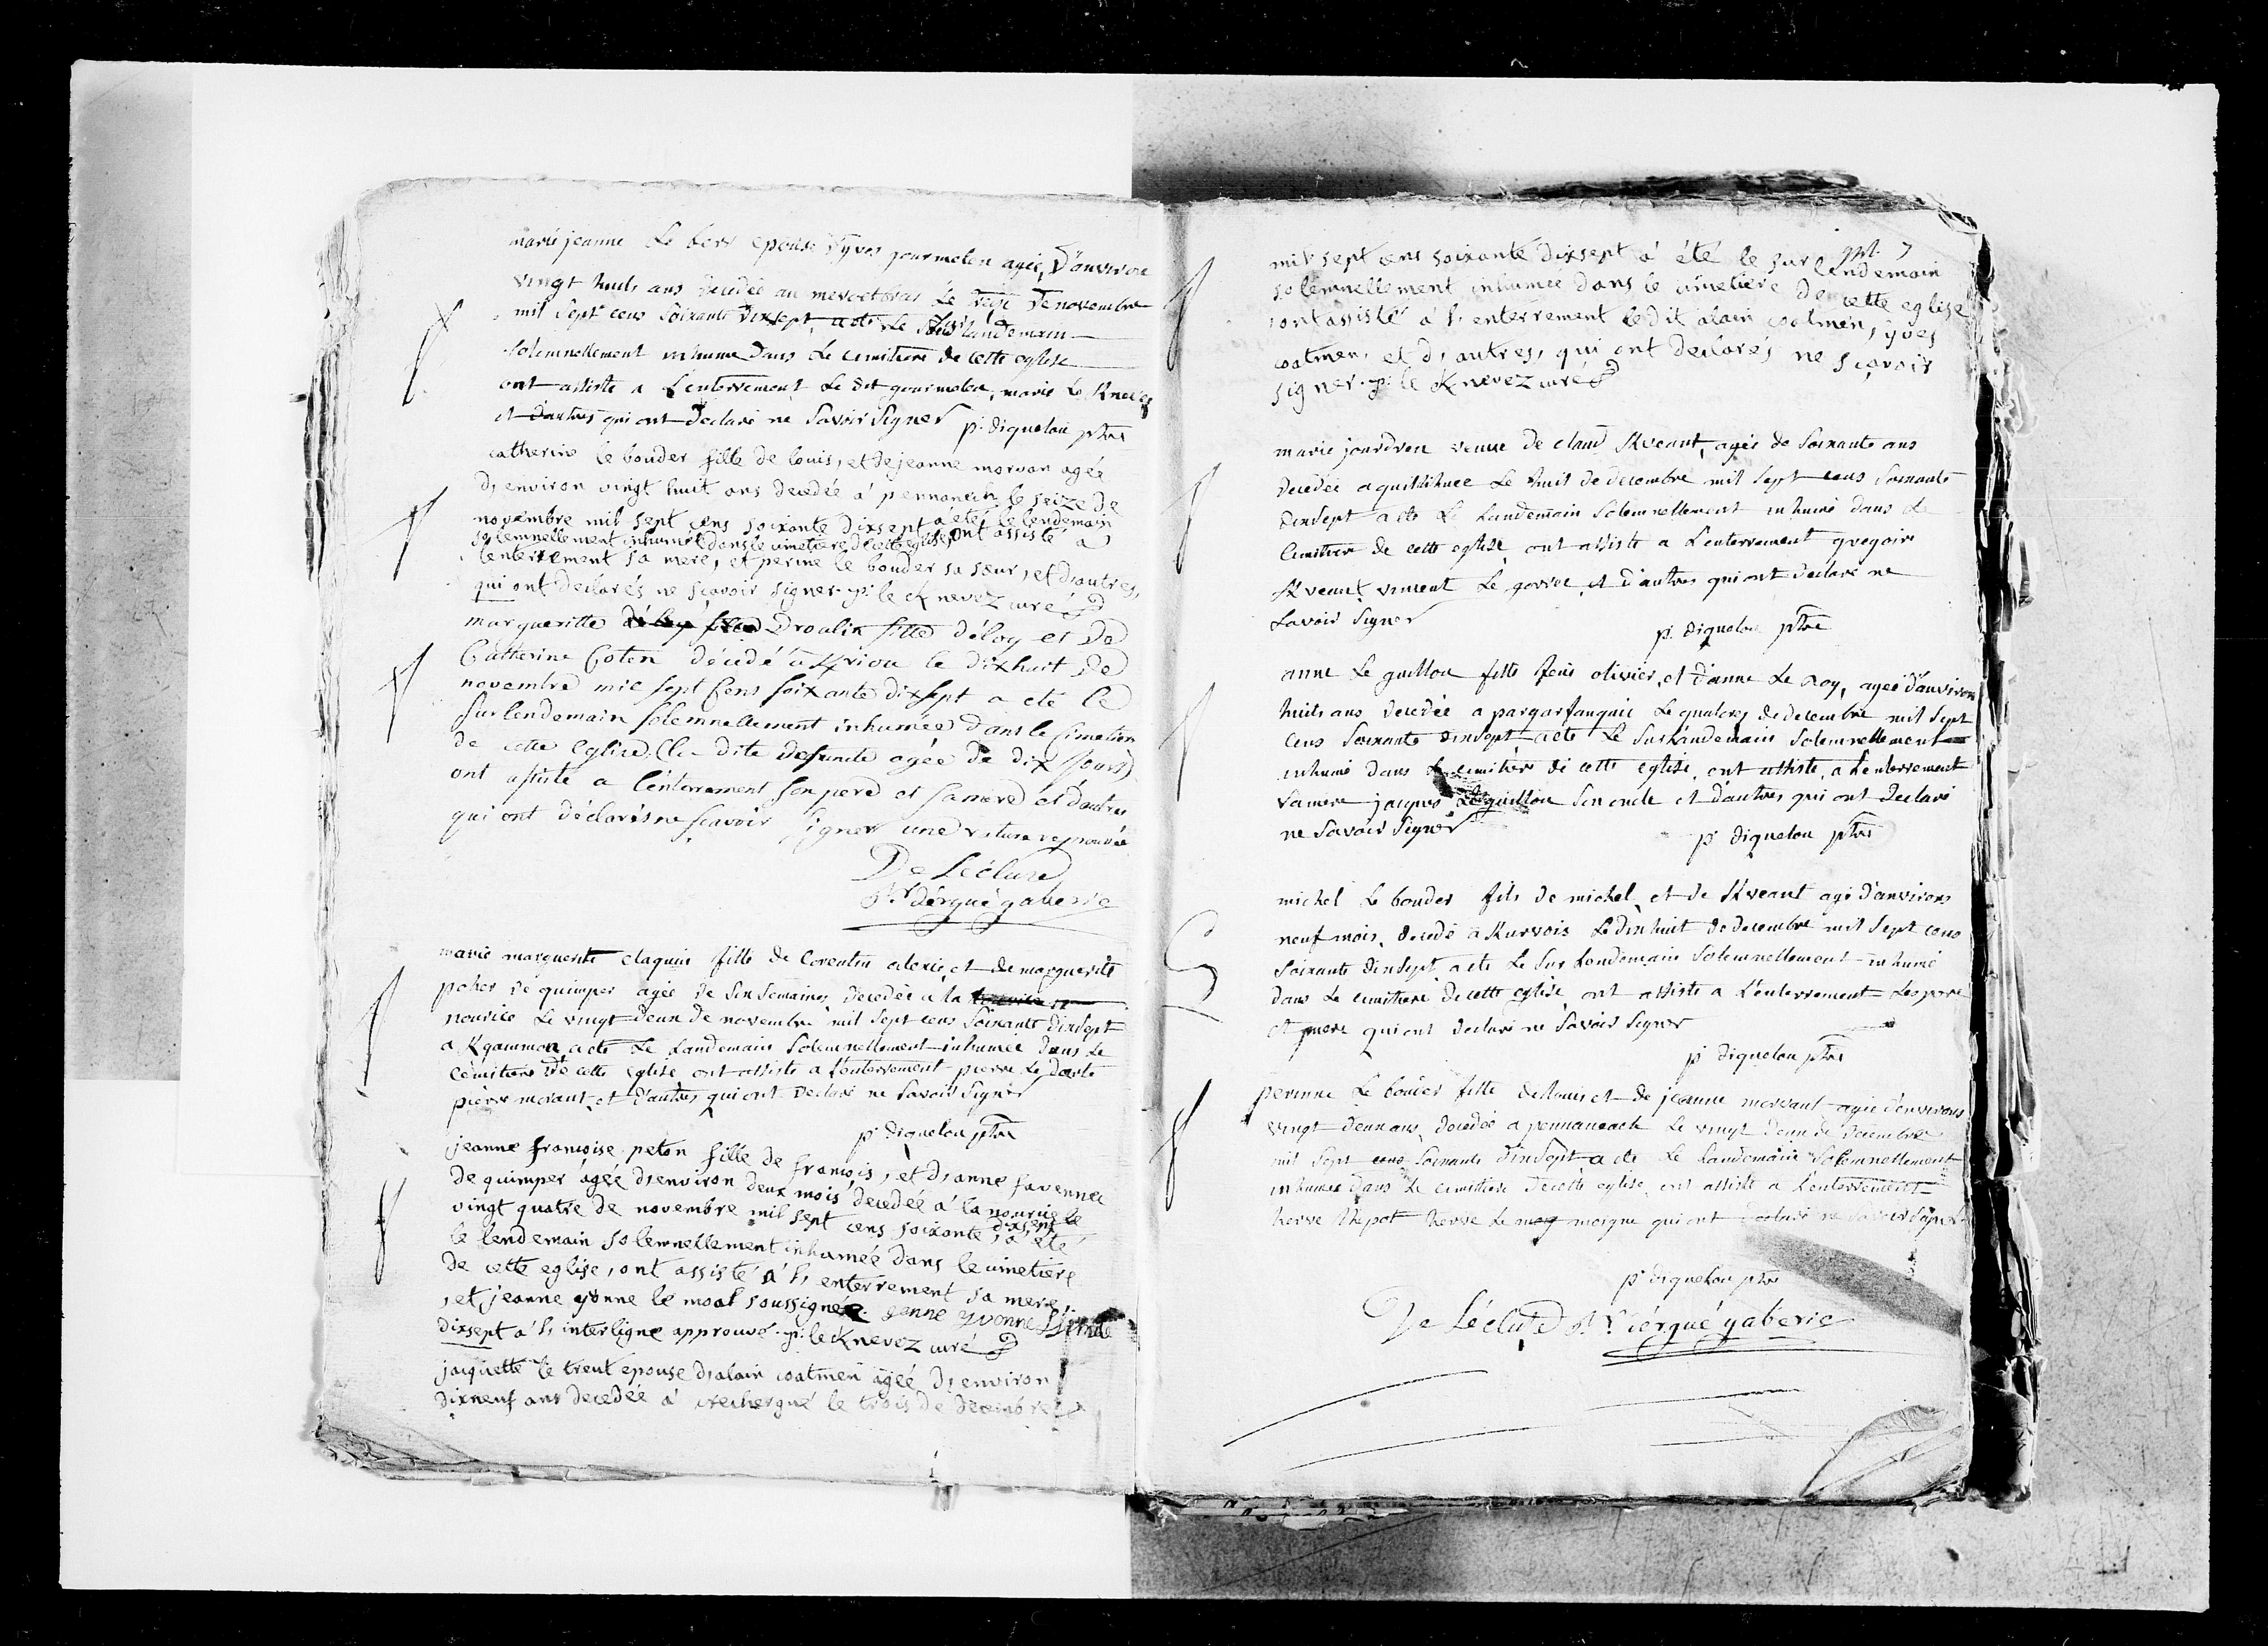 marie jeanne Le berr epouse d'yves gourmelen agée, D'anviron
vingt huits ans decedée au mervetbras Le treze de novembre
mil sept cens soixante dixsept, a ete Le landemain
solemnellement inhume Dans Le cimitiere de cette eglise
ont assiste a L'enterrement Le dit gourmelen, marie Le Knevez
et d'autres qui ont declaré ne savoir signer p: diquelou ptre
catherine le bouder fille de louis, et de jeanne morvan agée
d'environ vingt huit ans decedée á pennanech le seize de
novembre mil sept cens soixante dixsept a été le lendemain
solemnellement inhumée dans le cimetiere de cette eglise, ont assisté a
l'enterrement sa mere, et perine le bouder sa sœur, et d'autres,
qui ont declarés ne scavoir signer. p: le Knevez curé
margueritte droalin fille d'éloy et de
Catherine Coten décédé à Kriou le dixhuit de
novembre mil sept Cens soixante dixsept a eté le
surlendemain solemnellement inhumée dans le simetiere
de cette eglise, (la dite defunte agée de dix jours)
ont assisté a l'enterrement son pere et sa mere et d'autres
qui ont déclarés ne scavoir signer une rature reprouvée
De Lécluse
Rr dérgué gaberic
marie marguerite claquin fille de Corentin alexis, et de marguerite
poher de quimper agée de six semaines decedée a la
nourice Le vingt deux de novembre mil sept cens soixante dixsept
a Kgamon, a ete Le Landemain solemnellement inhumée dans Le
cémitiere de cette eglise ont assiste a l'enterrement pierre Le
pierre morant, et d'autres qui ont declaré ne savoir signer
p: diquelou ptre
jeanne françoise peton fille de françois, et d'anne favennec
de quimper ágéé d'environ deux mois decedéé á la nourice le
vingt quatre de novembre mil sept cens soixante dixsept, a été
le lendemain solemnellement inhumée dans le cimetiere
de cette eglise, ont assisté á l'enterrement sa mere
, et jeanne yvonne le moal soussignée. janne yvonne
dixsept á l'interligne approuvé. p: le Knevez curé
jaquette le treut epouse d'alain coatmen ágéé d'environ
dixneuf ans decedéé á crecherqué le trois de decembre
mil sept cens soixante dixsept á été le surlendemain
solemnellement inhumée dans le cimetiere de cette eglise
, ont assisté á l'enterrement ledit alain coatmen, yves
coatmen, et d'autres, qui ont declarés ne scavoir
signer. p: le Knevez curé
marie jourdren veuve de claud Kveant, agée de soixante ans
decedée a quillihuec Le huit de decembre mil sept cens soixante
dixsept a ete Le Landemain solemnellement inhume dans Le
cimitiere de cette eglise ont assiste a L'enterrement gregoire
Kveant, vincent Le govrec, et d'autres qui ont declaré ne
savoir signer
p: diquelou ptre
anne Le guillou fille feus olivier, et d'anne Le Roy, agée d'anviron
huits ans decedée a pargarfanquic Le quatorze de decembre mil sept
cens soixante dixsept a ete Le surlandemain solemnellement
inhumé dans Le cimitiere de cette eglise, ont assiste, a L'enterrement
sa mere jacques Le guillou son oncle et d'autres qui ont declaré
ne savoir signer
p: diquelou ptre
michel Le bouder fils de michel, et de Kveant agé d'anvirons
neuf mois, decedé a Kurvois Le dixhuit de decembre mil sept cens
soixante dixsept, a ete Le sur landemain solemnellement inhumé
dans Le cimitiere de cette eglise, ont assiste a L'enterrement Les pere
et mere qui ont declaré ne savoir signer
p: diquelou ptre
perinne Le bouder fille de Louis et de jeanne morvant agée d'environs
vingt deux ans, decedée a pennaneach Le vingt deux de decembre
mil sept cens soixante dixsept, a ete Le Landemain solemnellement
inhumée dans Le cimitiere de cette eglise, ont assiste a L'enterrement
herve herve Le moigne qui ont declaré ne savoir signer
p: diquelou ptre
De Lécluse Rr dérgué gaberic